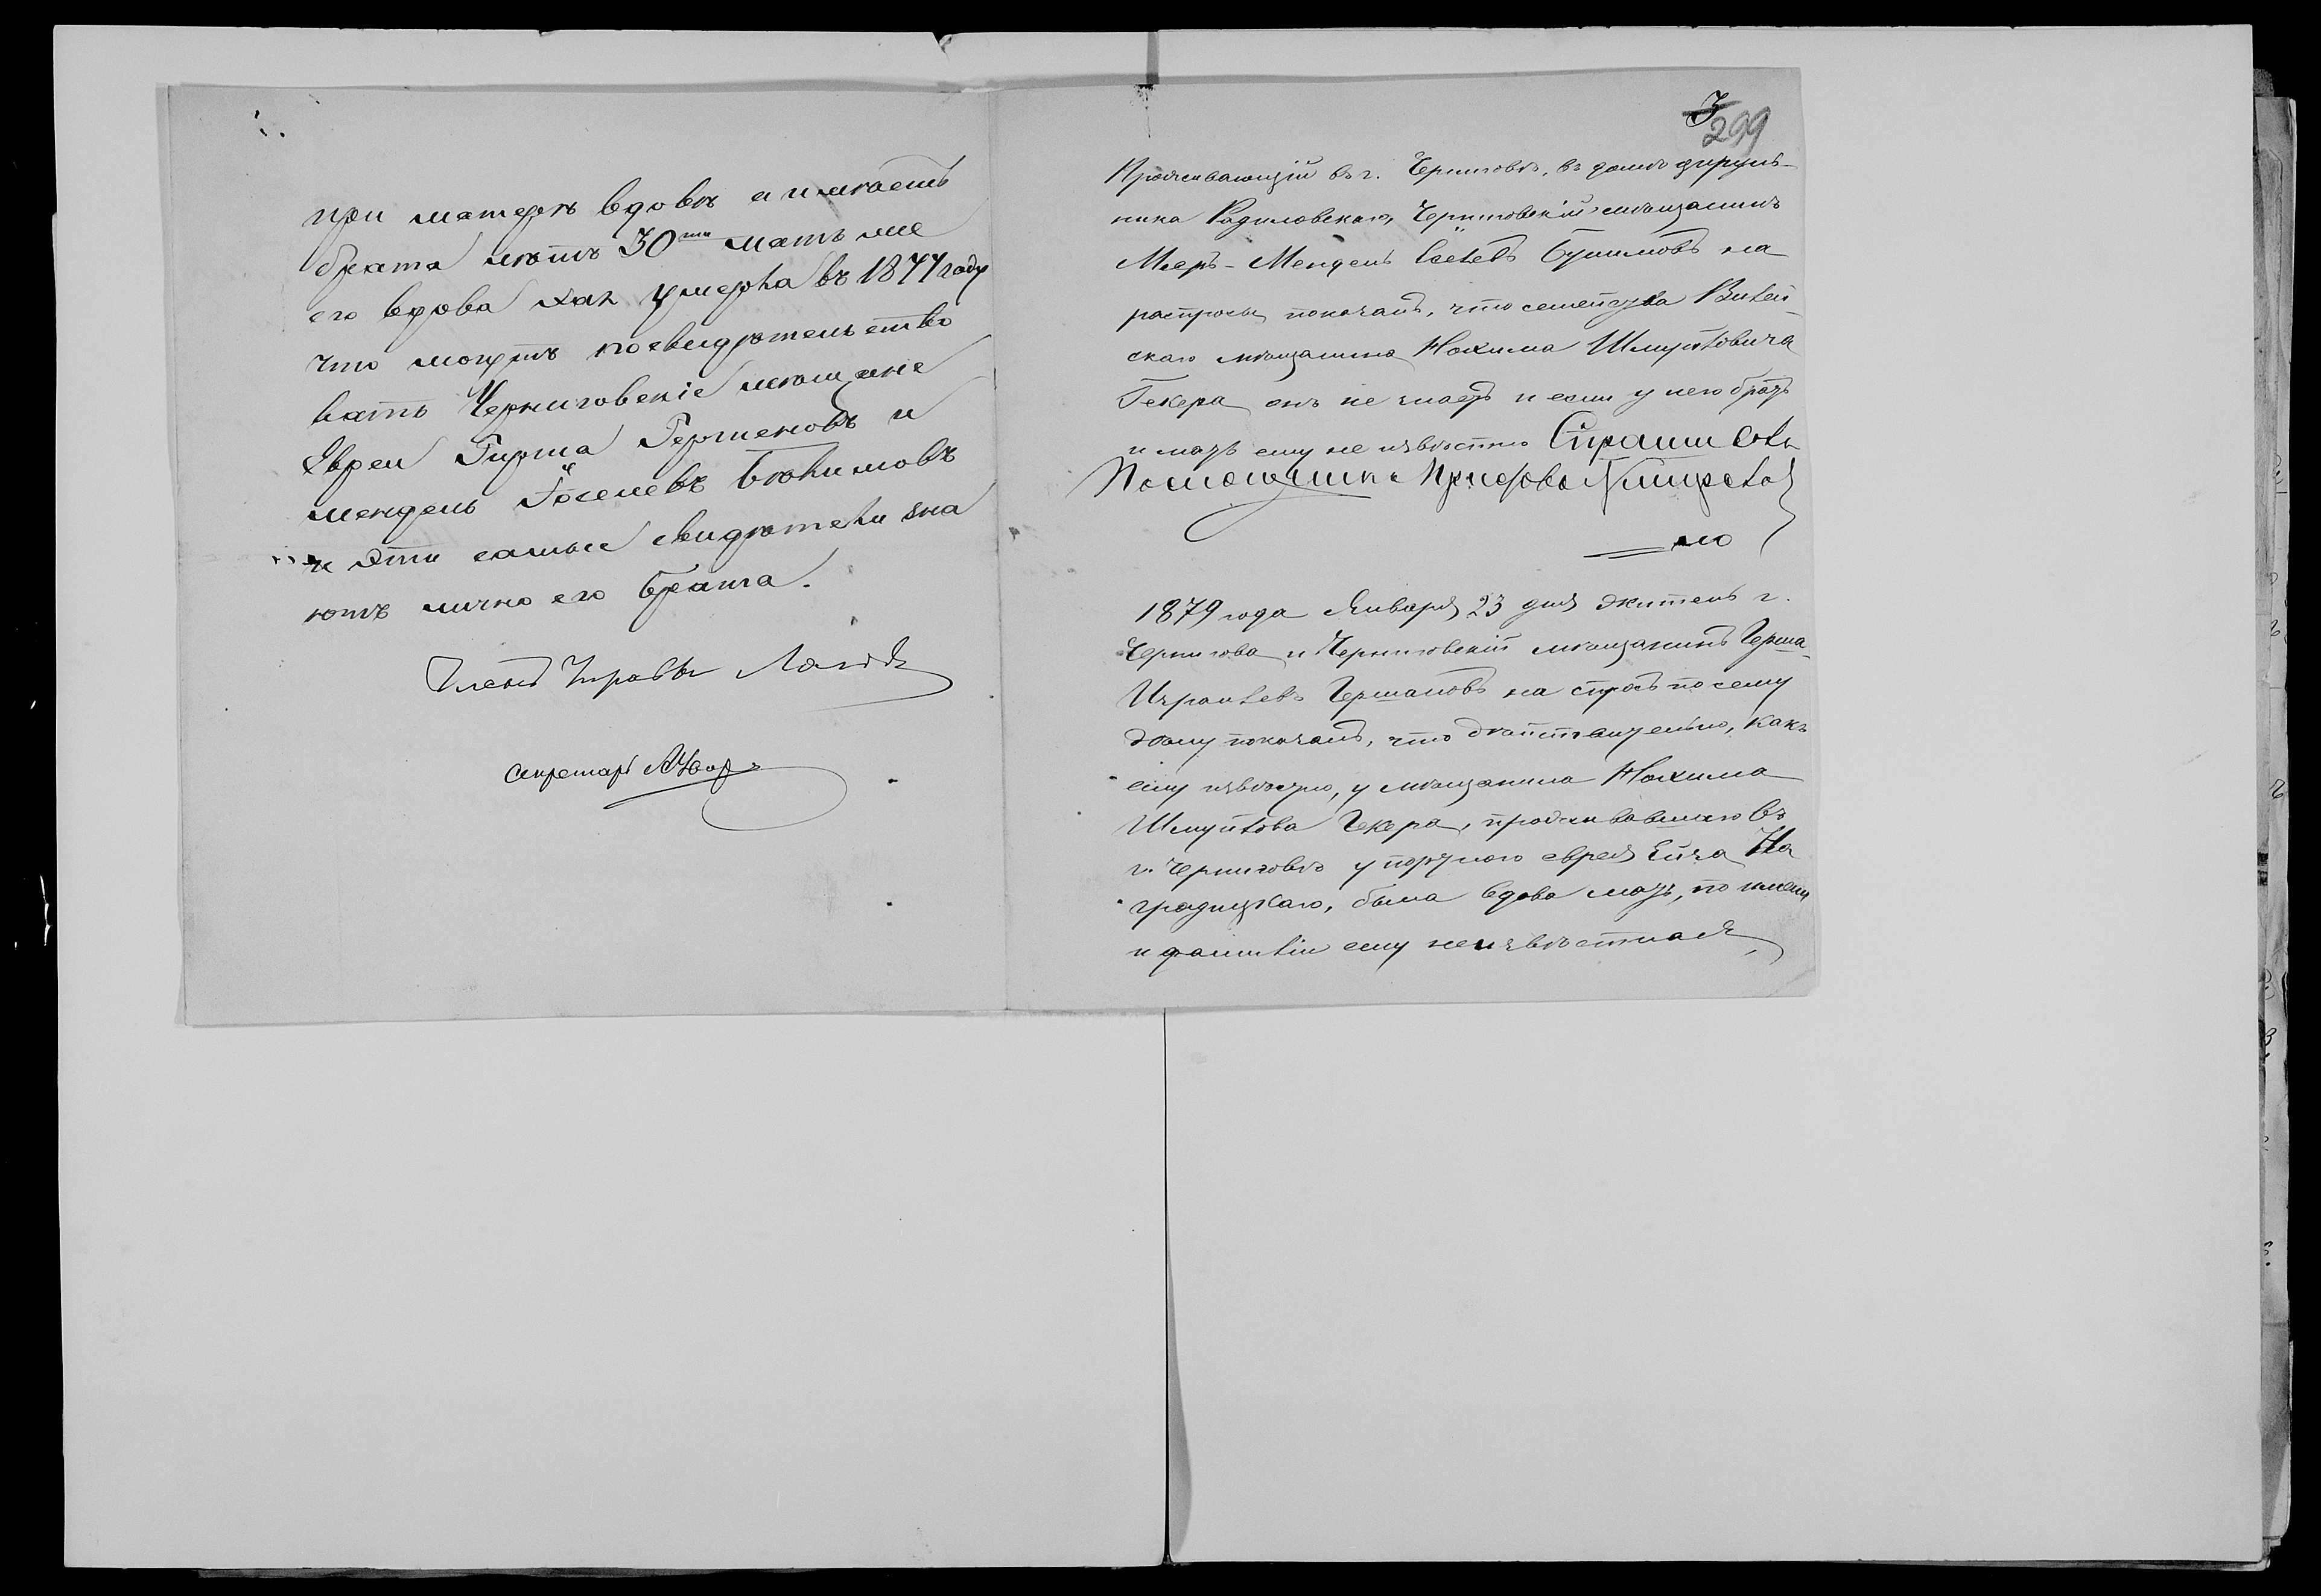 при матери вдовѣ а имѣетъ
брата лѣтъ 30ти мать же
его вдова Хая умерла въ 1877 году
что могутъ посвидѣтельство
вать Черниговскіе мѣщане
Евреи Гирша Гершеновъ и
мендель Іоселевъ
и эти самые свидѣтели зна
ютъ лично его брата.
Членъ Управы
Секретарь
3
299
Проживающій въ г. Черниговѣ, въ домѣ цируль-
ника Радиловскаго, Черниговскій мѣщанинъ
Мееръ-Мендель
на
разспросы показалъ, что семейства
скаго мѣщанина Нохима Шмуйловича
Гекера онъ не знаетъ и если у него братъ
и мать ему не извѣстно Спрашивалъ
Помощникъ Пристава
1879 года Января 23 дня житель г.
Чернигова и Черниговскій мѣщанинъ Герша
Израилевъ Гершановъ на спросъ по сему
дѣлу показалъ, что дѣйствительно, какъ
ему извѣстно, у мѣщанина Нохима
Шмуйлова Гекера, проживавшаго въ
г. Черниговѣ у портного еврея На
градицкаго, была вдова мать, по имени
и фамиліи ему неизвѣстная